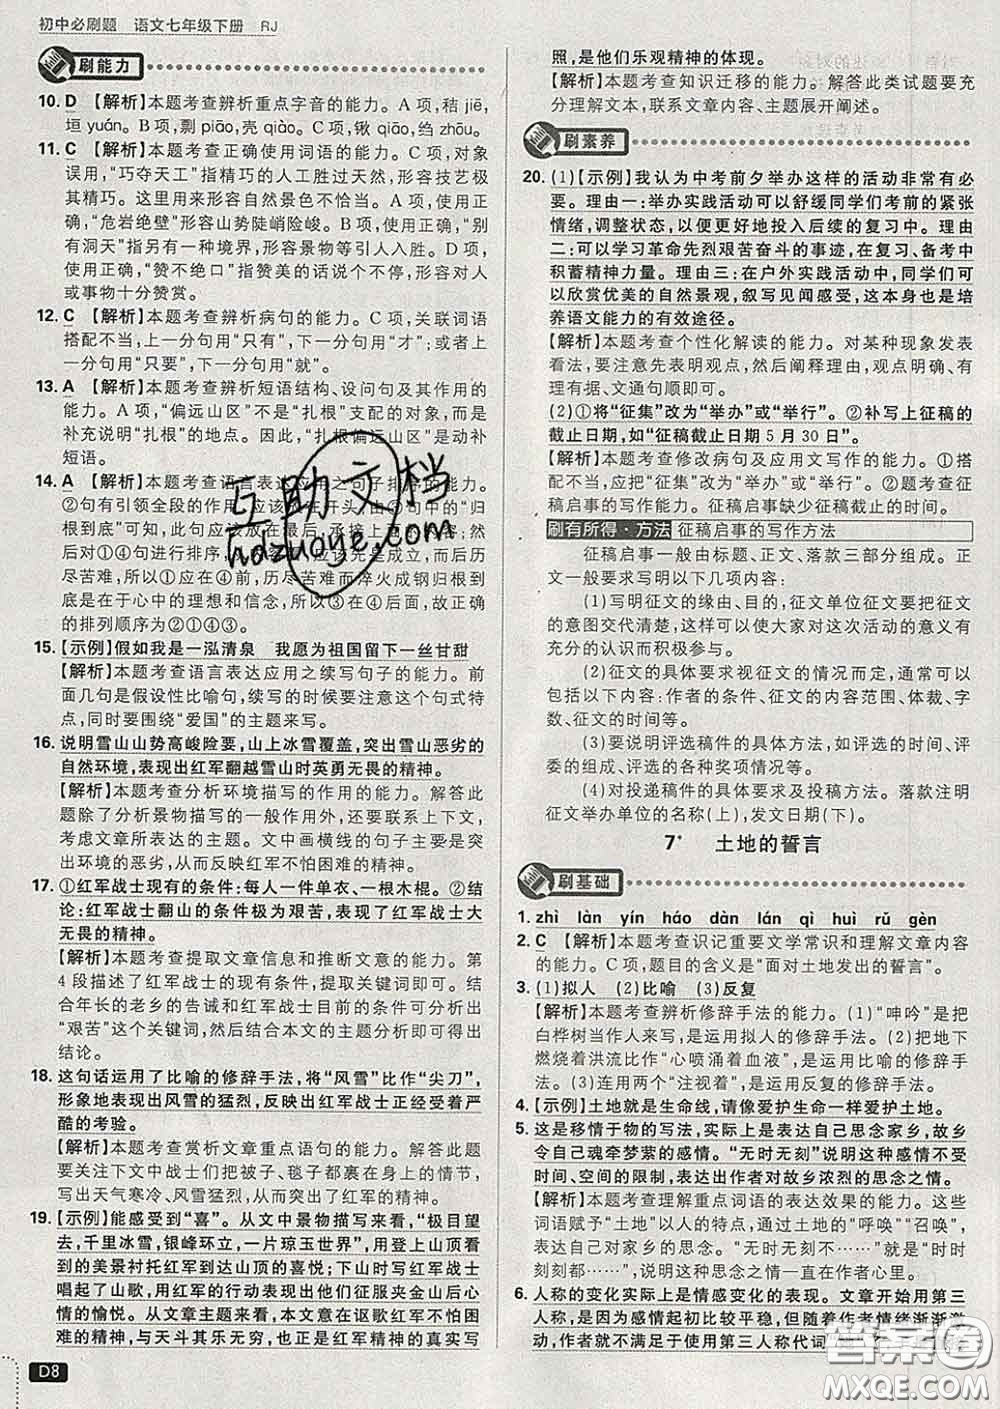 初中必刷题 语文七年级下册 RJ
刷能力
10. D 【解析】本题考查辨析重点字音的能力。A 项，秸 jiē，
垣 yuán。B 项，剽 piāo，壳 qiào。C 项，锹 qiāo，绉 zhōu。
11. C 【解析】本题考查正确使用词语的能力。C 项，对象
误用，“巧夺天工”指精巧的人工胜过天然，形容技艺极
其精巧。这里形容自然景色不恰当。A 项，使用正
确，“危岩绝壁”形容山势陡峭险峻。B 项，使用正确，“别
有洞天”指另有一种境界，形容景物等引人入胜。D 项，
使用正确，“赞不绝口”指赞美的话说个不停，形容对人
或事物十分赞赏。
12. C 【解析】本题考查辨析病句的能力。C 项，关联词语
搭配不当，上一分句用“只有”，下一分句用“才”；或者上
一分句用“只要”，下一分句用“就”。
13. A 【解析】本题考查辨析短语结构、设问句及其作用的
能力。A 项，“偏远山区”不是“扎根”支配的对象，而是
补充说明“扎根”的地点。因此，“扎根偏远山区”是动补
短语。
14. A 【解析】本题考查语言表达应用之句子排序的能力。
②句有引领全段的作用，应该放在开头；由①句中的“归
根到底”可知，此句应该放在最后，承接总起句②。
④句进行排序，
历尽苦难，所以①应在④前，历尽苦难而淬火成钢归根到
底是在于心中的理想和信念，所以③在④后面，故正确
的排列顺序为②①④③。
15. 【示例】假如我是一泓清泉 我愿为祖国留下一丝甘甜
【解析】本题考查语言表达应用之续写句子的能力。
前面几句是假设性比喻句，续写的时候要注意这个句式特
点，同时要围绕“爱国”的主题来写。
16. 说明雪山山势高峻险要，山上冰雪覆盖，突出雪山恶劣的
自然环境，表现出红军翻越雪山时英勇无畏的精神。
【解析】本题考查分析环境描写的作用的能力。解答此
题除了分析景物描写的一般作用外，还要联系上下文，思
考文章所表达的主题。文中画横线的句子主要写出了
环境的恶劣，从而反映红军不怕困难的精神。
17. ①红军战士现有的条件：每人一件单衣、一根木棍。②结
论：红军战士翻山的条件极为艰苦，表现了红军战士大
无畏的精神。
【解析】本题考查提取文章信息和推断文章的能力。第
4 段描述了红军战士的现有条件，提取关键词即可。结
合年长的老乡的告诫和红军战士目前的条件可分析出
“艰苦”这个关键词，然后结合本文的主题分析即可得出
结论。
18. 这句话运用了比喻的修辞手法，将“风雪”比作“尖刀”，
形象地表现出风雪的猛烈，反映出红军战士正经受着严
酷的考验。
【解析】本题考查赏析文章重点语句的能力。解答此题
要关注下文中战士们把被子、毯子都裹在身上的情节，
写出天气寒冷、风雪猛烈，从而反映红军战士的艰苦。
19. 【示例】能感受到“喜”。从文中景物描写来看，“极目望
去，千里冰雪，银峰环立，一片琼玉世界”，用登上山顶看到
的美景衬托红军到达山顶的喜悦；下山时写红军战士
唱起了山歌，用红军的行动表现他们征服夹金山后心
情的愉悦。从文章主题来看，本文意在讴歌红军不怕困
难的精神，与天斗其乐无穷，也是红军精神的真实写
D8
照，是他们乐观精神的体现。
【解析】本题考查知识迁移的能力。解答此类试题要充
分理解文本，联系文章内容、主题展开阐述。
刷素养
20. (1)【示例】我认为中考前夕举办这样的活动非常有必
要。理由一：举办实践活动可以舒缓同学们考前的紧张
情绪，调整状态，以便更好地投入后续的复习中。理由
二：可以学习革命先烈艰苦奋斗的事迹，在复习、备考中
积蓄精神力量。理由三：在户外实践活动中，同学们可
以欣赏优美的自然景观，叙写见闻感受，这本身也是培
养语文能力的有效途径。
【解析】本题考查个性化解读的能力。对某种现象发表
看法，要注意先表明观点，然后阐释理由，观点明确、有
理有据、文通句顺即可。
(2)①将“征集”改为“举办”或“举行”。②补写上征稿的
截止日期，如“征稿截止日期 5 月 30 日”。
【解析】本题考查修改病句及应用文写作的能力。①搭
配不当，应把“征集”改为“举办”或“举行”。②本题考查
征稿启事的写作能力。征稿启事缺少征稿截止的时间。
刷有所得·方法 征稿启事的写作方法
征稿启事一般由标题、正文、落款三部分组成。正
文一般要求写明以下几项内容：
(1)写明征文的缘由、目的，征文单位征文要把征文
的意图交代清楚，这样可以使大家对这次活动的意义有
充分的认识而积极参与。
(2)征文的具体要求视征文的情况而定，通常可以
包括以下内容：作者的条件、征文的内容范围、体裁、字
数、征文的时间等。
(3)要说明评选稿件的具体方法，如评选的时间、评
委的组成、评选的各种奖项情况等。
(4)对投递稿件的具体要求及投稿方法。落款注明
征文举办单位的名称(上)，发文日期(下)。
7* 土地的誓言
刷基础
1. zhì làn yín háo dàn lán qì huì rǔ gèn
2. C 【解析】本题考查识记重要文学常识和理解文章内容
的能力。C 项，题目的含义是“面对土地发出的誓言”。
3. (1)拟人 (2)比喻 (3)反复
【解析】本题考查辨析修辞手法的能力。(1)“呻吟”是把
白桦树当作人来写，是运用拟人的修辞手法。(2)把地下
燃烧着洪流比作“心喷涌着血液”，是运用比喻的修辞手
法。(3)连用两个“注视着”，是运用反复的修辞手法。
4. 【示例】土地就是生命线，请像爱护生命一样爱护土地。
5. 这是移情于物的写法，实际上是表达自己思念家乡，故乡
令自己魂牵梦萦的感情。“无时无刻”说明这种感情不受
时间、空间的限制，表达出作者对故乡浓烈的思念之情。
【解析】本题考查理解重点词语的表达效果的能力。这些
词语赋予“土地”以人的特点，通过土地的“呼唤”“召唤”，
表达自己对家乡的思念。“无时无刻不……”就是“时时
刻刻都……”，说明这种思念之情一直在作者心里。
6. 人称的变化实际上是情感变化的表现。文章开始用第三
人称，是因为感情起初比较平稳，但随着作者情绪渐渐激
动，作者就不满足于使用第三人称代词
互助文档
hdzuoye.com
答案圈
MXQE.COM